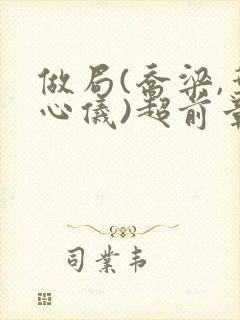 做局(乔梁,
心仪)超前
司業韦